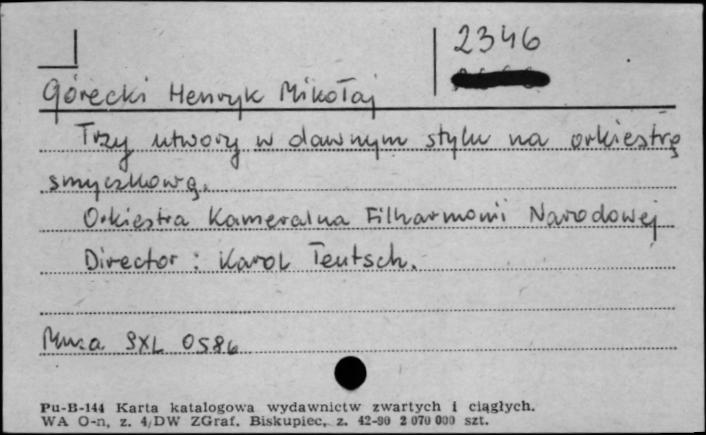 2346
Górecki Henryk Mikołaj
Trzy utwory w dawnym stylu na orkiestrę
smyczkową.
Orkiestra Kameralna Filharmonii Narodowej
Director : Karol Teutsch.
Muza SXL 0586
Pu-B-144 Karta katalogowa wydawnictw zwartych i ciągłych.
WA O-n, z. 4/DW ZGraf. Biskupiec, z. 42-90 2 070 000 szt.